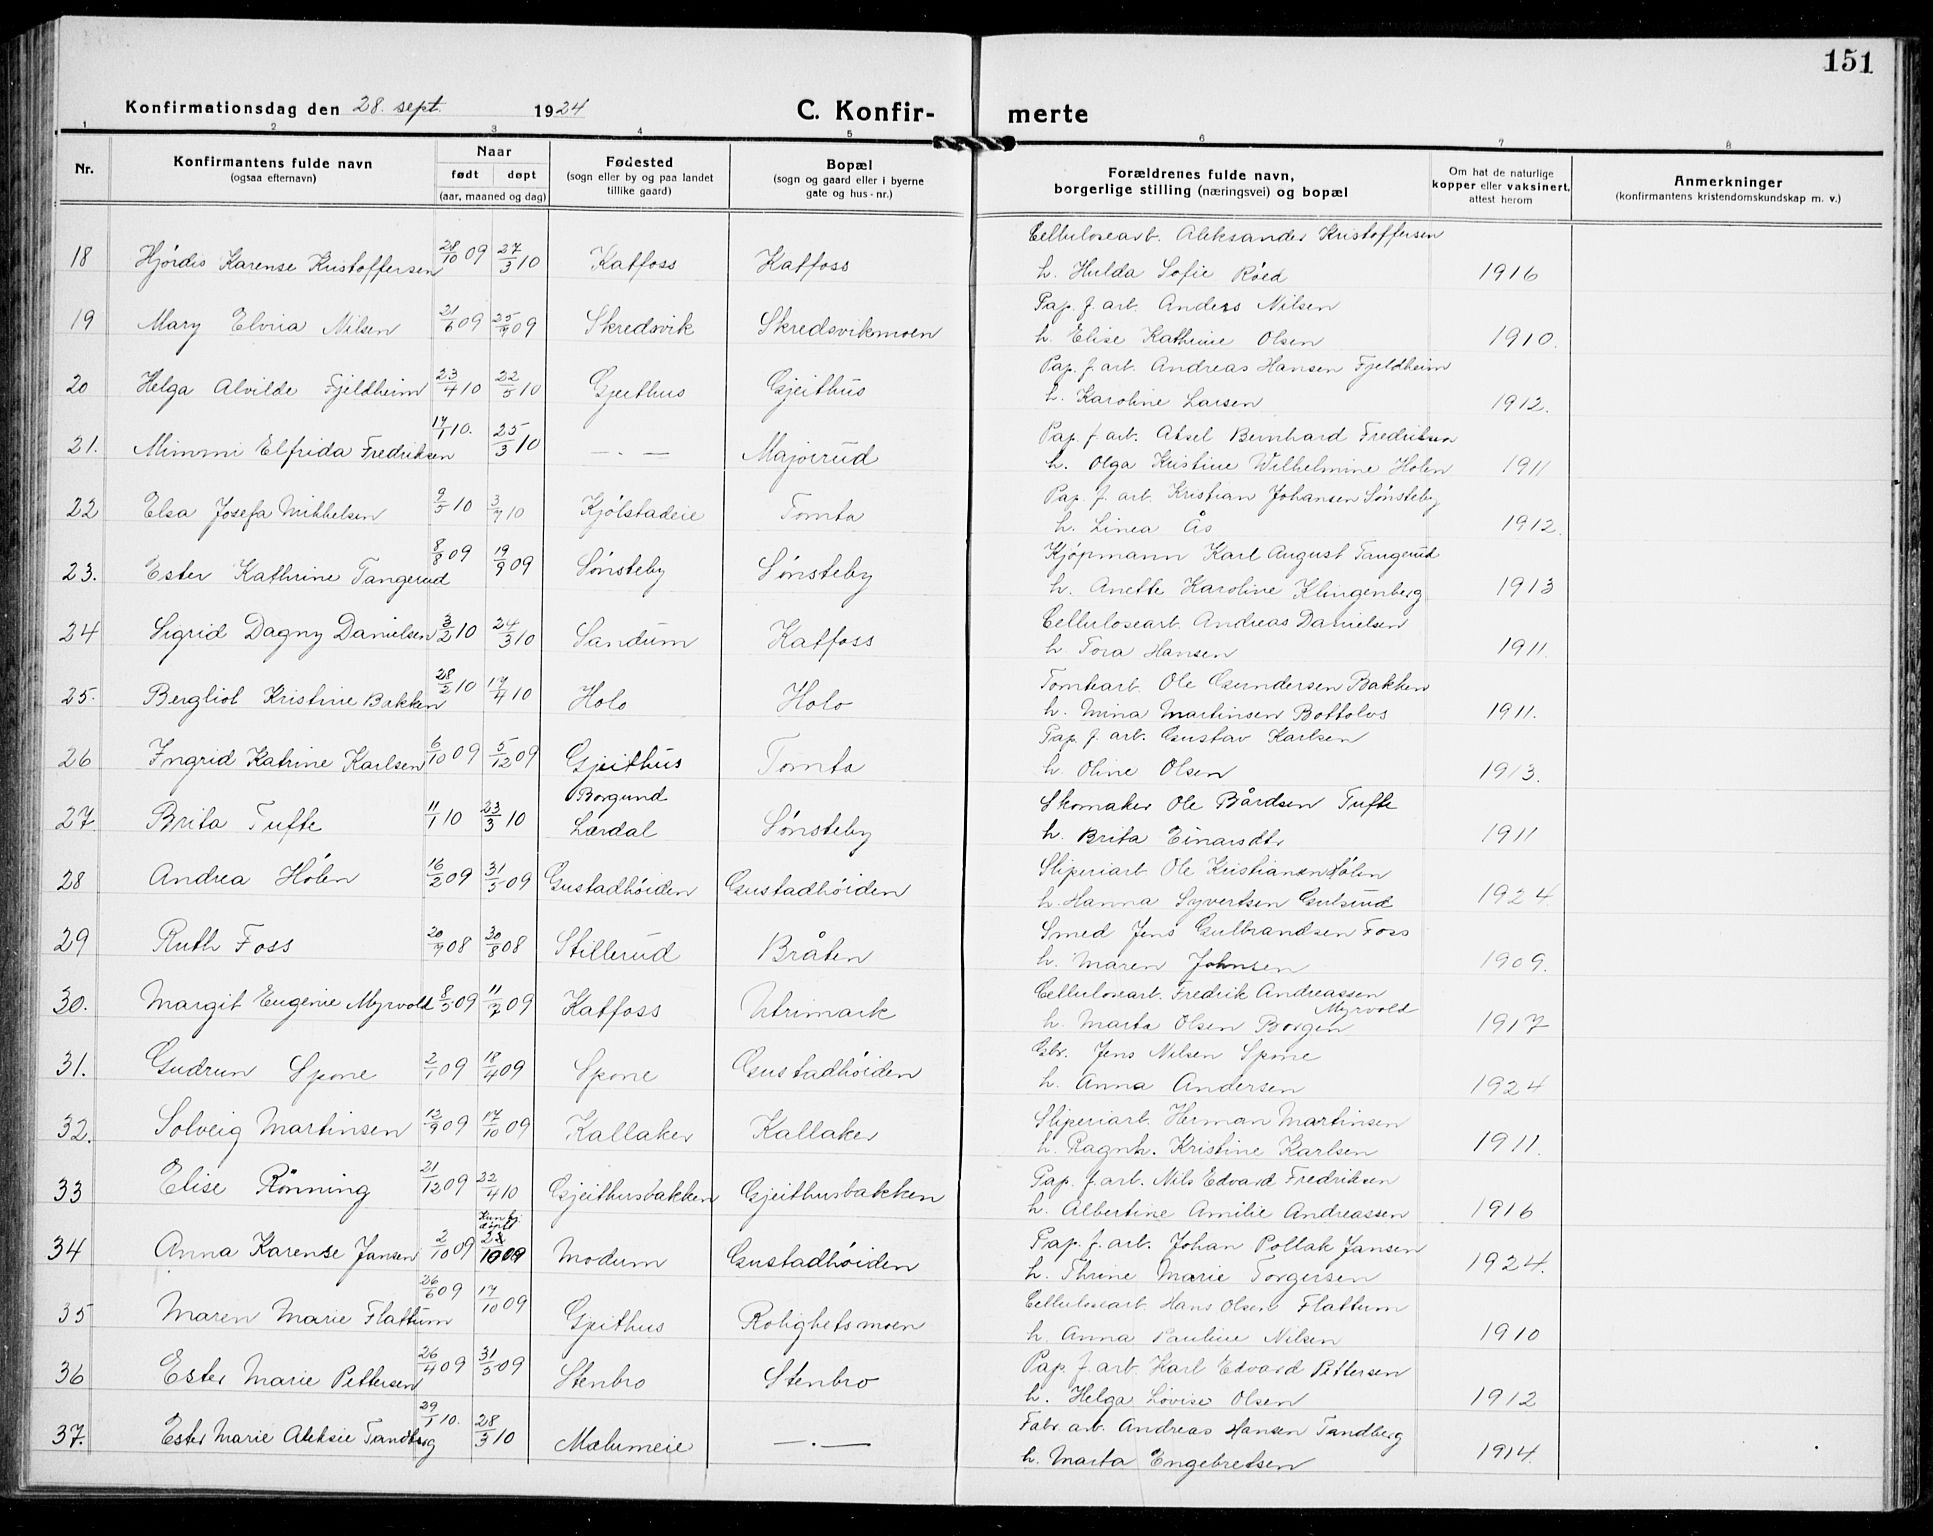 151
Konfirmationsdag den 28. sept. 1924 C. Konfir- merte
1 2 3 4 5 6 7 8
Nr. Konfirmantens fulde navn (ogsaa efternavn) Naar født døpt (aar, maaned og dag) Fødested (sogn eller by og paa landet tillike gaard) Bopæl (sogn og gaard eller i byerne gate og hus-nr.) Forældrenes fulde navn, borgerlige stilling (næringsvei) og bopæl Om hat de naturlige kopper eller vaksinert, attest herom Anmerkninger (konfirmantens kristendomskundskap m. v.)
18 Hjørdis Karense Kristoffersen 28/10 09 27/3 10 Katfoss Katfoss Cellulosearb. Aleksander Kristoffersen
h. Hulda Sofie Røed 1916
19 Mary Elvira Nilsen 21/6 09 25/9 09 Skredsvik Skredsvikmoen Pap. f. arb. Anders Nilsen
h. Elise Kathrine Olsen 1910.
20 Helga Alvilde Fjeldheim 23/4 10 22/5 10 Gjeithus Gjeithus Pap. f. arb. Andreas Hansen Fjeldheim
h. Karoline Larsen 1912.
21. Mimmi Elfrida Fredriksen 17/1 10. 25/3 10 —.— Majorrud Pap. f. arb. Aksel Bernhard Fredriksen
h. Olga Kristine Wilhelmine Holen 1911
22 Elsa Josefa Mikkelsen 9/5 10 3/7 10 Kjølstadeie Tomta Pap. f. arb. Kristian Johansen Sønsteby
h. Linea Ås 1912.
23. Ester Kathrine Tangerud 8/8 09 19/9 09 Sønsteby Sønsteby Kjøpmann Karl August Tangerud
h. Anette Karoline Klingenberg 1913
24 Sigrid Dagny Danielsen 3/2 10 24/3 10 Sandum Katfoss Cellulosearb. Andreas Danielsen
h. Tora Hansen 1911.
25. Bergliot Kristine Bakken 28/2 10 17/4 10 Holo Holo Tomtearb. Ole Gundersen Bakken
h. Mina Martinsen Bottolvs 1911.
26 Ingrid Katrine Karlsen 6/10 09 5/12 09 Gjeithus Tomta Pap. f. arb. Gustav Karlsen
h. Oline Olsen 1913.
27 Brita Tufte 11/1 10 23/3 10 Borgund Lærdal Sønsteby Skomaker Ole Bårdsen Tufte
h. Brita Einarsdtr 1911
28 Andrea Hølen 16/2 09 31/5 09 Gustadhøiden Gustadhøiden Sliperiarb. Ole Kristiansen Hølen
h. Hanna Syvertsen Gulsrud 1924
29 Ruth Foss 20/7 08 30/8 08 Stillerud Bråten Smed Jens Gulbrandsen Foss
h. Maren Johnsen 1909.
30. Margit Eugenie Myrvold 8/5 09 11/7 09 Katfoss Utrimark Cellulosearb. Fredrik Andreassen Myrvold
h. Marta Olsen Borgen 1917
31. Gudrun Spone 2/1 09 18/4 09 Spone Gustadhøiden Gbr. Jens Nilsen Spone
h. Anna Andersen 1924
32. Solveig Martinsen 12/9 09 17/10 09 Kallaker Kallaker Sliperiarb. Herman Martinsen
h. Ragnh. Kristine Karlsen 1911.
33 Elise Rønning 21/12 09 22/4 10 Gjeithusbakken Gjeithusbakken Pap. f. arb. Nils Edvard Fredriksen
h. Albertine Amilie Andreassen 1916
34 Anna Karense Jansen 2/10 09 09 Modum Gustadhøiden Pap. f. arb. Johan Pollak Jansen
h. Thrine Marie Torgersen 1924.
35 Maren Marie Flattum 26/6 09 17/10 09 Gjeithus Rolighetsmoen Cellulosearb. Hans Olsen Flattum
h. Anna Pauline Nilsen 1910
36 Ester Marie Pettersen 26/4 09 31/5 09 Stenbro Stenbro Pap. f. arb. Karl Edvard Pettersen
h. Helga Lovise Olsen 1912
37. Ester Marie Aleksie Tandberg 29/1 10. 28/3 10 Mælumeie —.— Fabr arb. Andreas Hansen Tandberg
h. Marta Engebretsen 1914.